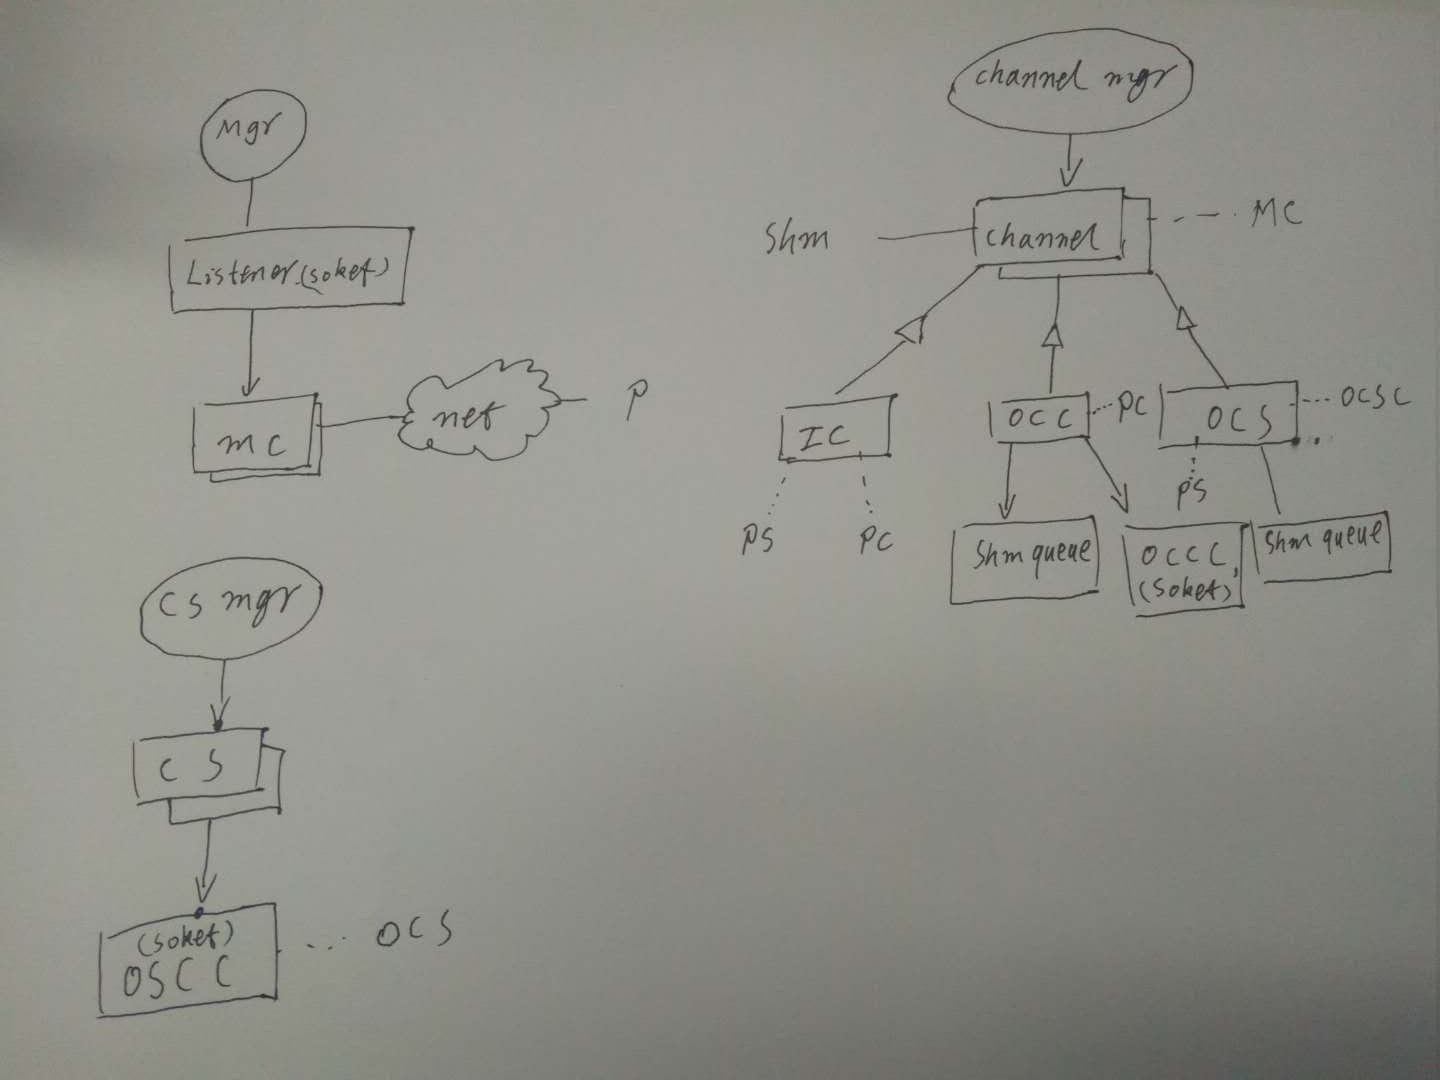 Mgr
Listener (soket)
MC
net
P
CS mgr
CS
(soket)
OSCC
OCS
channel mgr
Shm
channel
MC
IC
OCC
PC
OCS
OCSC
PS
PC
PS
Shm queue
OCCC
(soket)
Shm queue